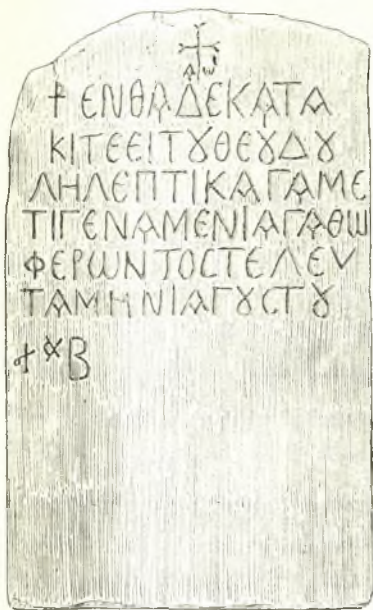 ⲁ ⲱ
☧ ΕΝΘΑΔΕΚΑΤΑ
ΚΙΤΕΕΙΤȣΘΕȣΔȣ
ΛΗΛΕΠΤΙΚΑΓΑΜΕ
ΤΙΓΕΝΑΜΕΝΙΑΓΑΘΩ
ΦΕΡΩΝΤΟCΤΕΛΕV
ΤΑΜΗΝΙΑΓȣCΤȣ
Β